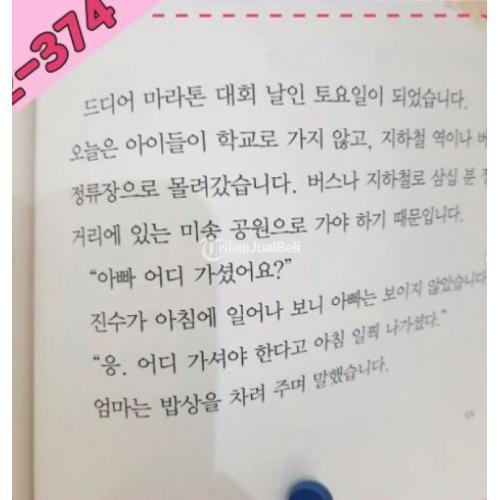 2-374
드디어 마라톤 대회 날인 토요일이 되었습니다.
오늘은 아이들이 학교로 가지 않고, 지하철 역이나 버
정류장으로 몰려갔습니다. 버스나 지하철로 삼십 분
거리에 있는 미송 공원으로 가야 하기 때문입니다.
TribunJualBeli
“아빠 어디 가셨어요?”
진수가 아침에 일어나 보니 아빠는 보이지 않았습니다
“응. 어디 가셔야 한다고 아침 일찍 나가셨다.”
엄마는 밥상을 차려 주며 말했습니다.